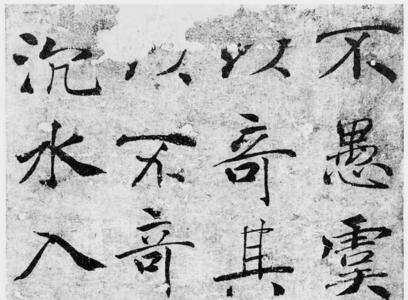 不愚虞
以奇其
以不奇
沉水入